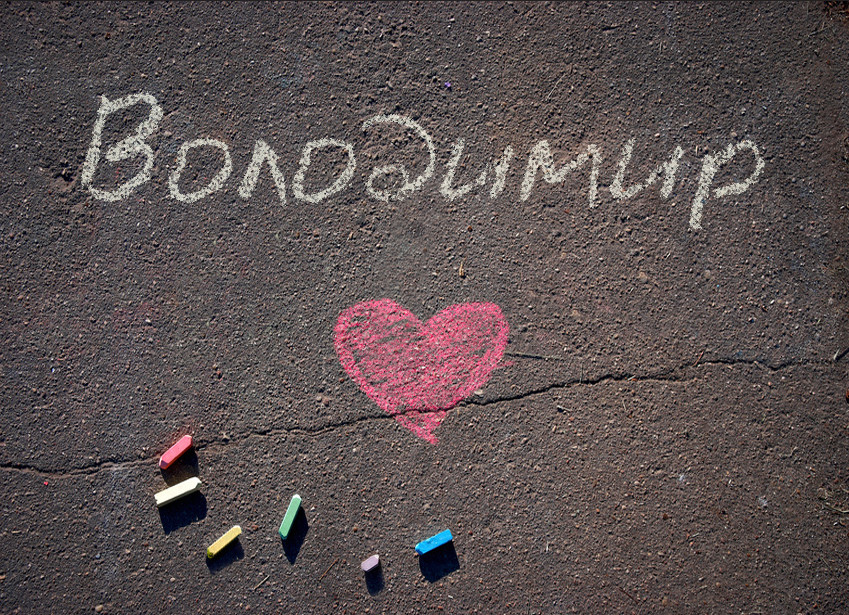 Володимир